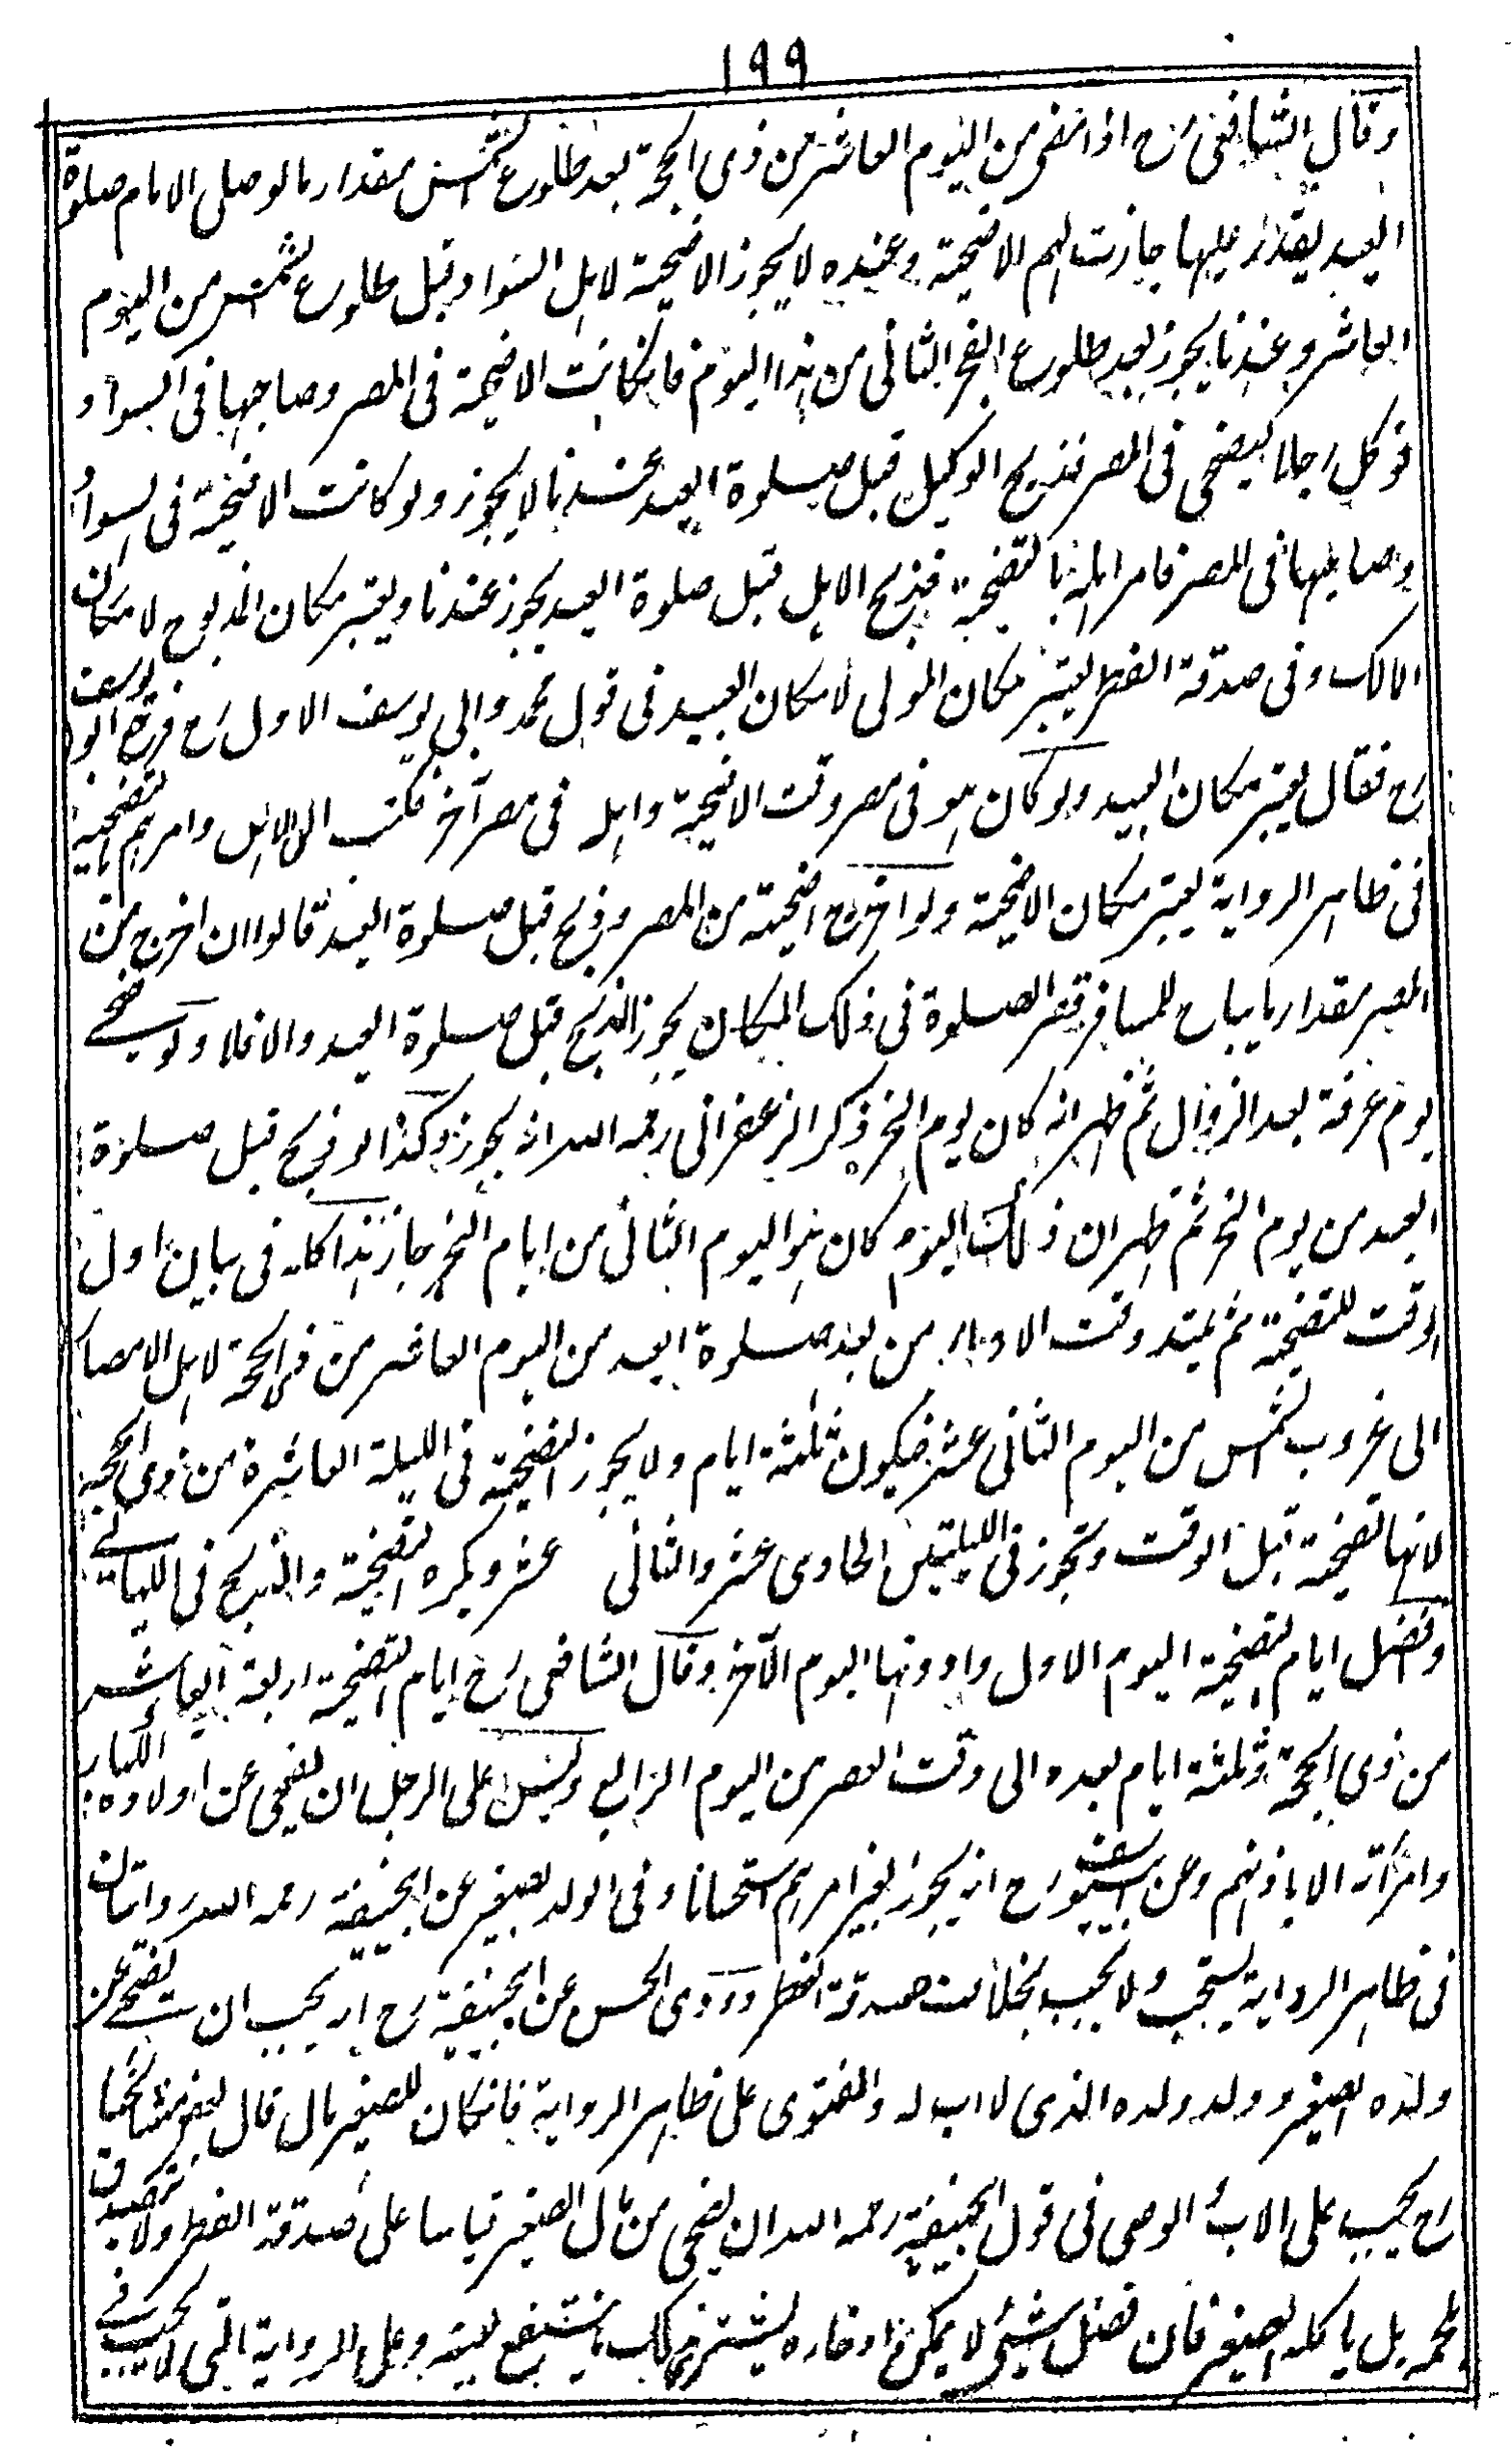 ١٩٩
وقال الشافعي رح اذا مضى من اليوم العاشر من ذي الحجة بعد طلوع الشمس مقدار ما لو صلى الامام صلوة
العيد يقدر عليها جازت لهم الاضحية وعنده لا يجوز الاضحية لاهل السواد قبل طلوع الشمس من اليوم
العاشر وعندنا يجوز بعد طلوع الفجر الثاني من هذا اليوم فانكانت الاضحية في المصر وصاحبها في السواد
فوكل رجلا ليضحي في المصر فذبح الوكيل قبل صلوة العيد عندنا لا يجوز ولو كانت الاضحية في السواد
وصاحبها في المصر فامر اهله بالتضحية فذبح الاهل قبل صلوة العيد يجوز عندنا ويعتبر مكان المذبوح لا مكان
المالك وفي صدقة الفطر يعتبر مكان المولى لا مكان العبيد في قول محمد وابي يوسف الاول رح فرجع ابو يوسف
رح فقال يعتبر مكان العبيد ولو كان هو في مصر وقت الاضحية واهله في مصر آخر فكتب الى الاهل وامرهم بالتضحية
في ظاهر الرواية يعتبر مكان الاضحية ولو اخرج اضحيته من المصر وذبح قبل صلوة العيد قالوا ان اخرج من
المصر مقدار ما يباح للمسافر قصر الصلوة في ذلك المكان يجوز الذبح قبل صلوة العيد والا فلا ولو ضحى
يوم عرفة بعد الزوال ثم ظهر انه كان يوم النحر ذكر الزعفراني رحمه الله انه يجوز وكذا لو ذبح قبل صلوة
العيد من يوم النحر ثم ظهر ان ذلك اليوم كان هو اليوم الثاني من ايام النحر جاز هذا كله في بيان اول
الوقت للتضحية ثم يمتد وقت الاداء من بعد صلوة العيد من اليوم العاشر من ذي الحجة لاهل الامصار
الى غروب الشمس من اليوم الثاني عشر فيكون ثلثة ايام ولا يجوز التضحية في الليلة العاشرة من ذي الحجة
لانها تضحية قبل الوقت وتجوز في الليلتين الحادي عشر والثاني عشر ويكره التضحية والذبح في الليالي
وافضل ايام التضحية اليوم الاول وادونها اليوم الآخر وقال الشافعي رح ايام التضحية اربعة العاشر
من ذي الحجة وثلثة ايام بعده الى وقت العصر من اليوم الرابع وليس على الرجل ان يضحي عن اولاده الكبار
وامرأته الا باذنهم وعن ابي يوسف رح انه يجوز بغير امرهم استحسانا وفي الولد الصغير عن ابي حنيفة رحمه الله روايتان
في ظاهر الرواية يستحب ولا يجب بخلاف صدقة الفطر وروى الحسن عن ابي حنيفة رح انه يجب ان يضحي عن
ولده الصغير وولد ولده الذي لا اب له والفتوى على ظاهر الرواية فانكان للصغير مال قال بعض مشايخنا
رح يجب على الاب والوصي في قول ابي حنيفة رحمه الله ان يضحي من مال الصغير قياسا على صدقة الفطر ولا يتصدق
بلحمه بل ياكله الصغير فان فضل شيئ لا يمكن ادخاره يشترى بذلك ما ينتفع بعينه وعلى الرواية التي لا يجب في